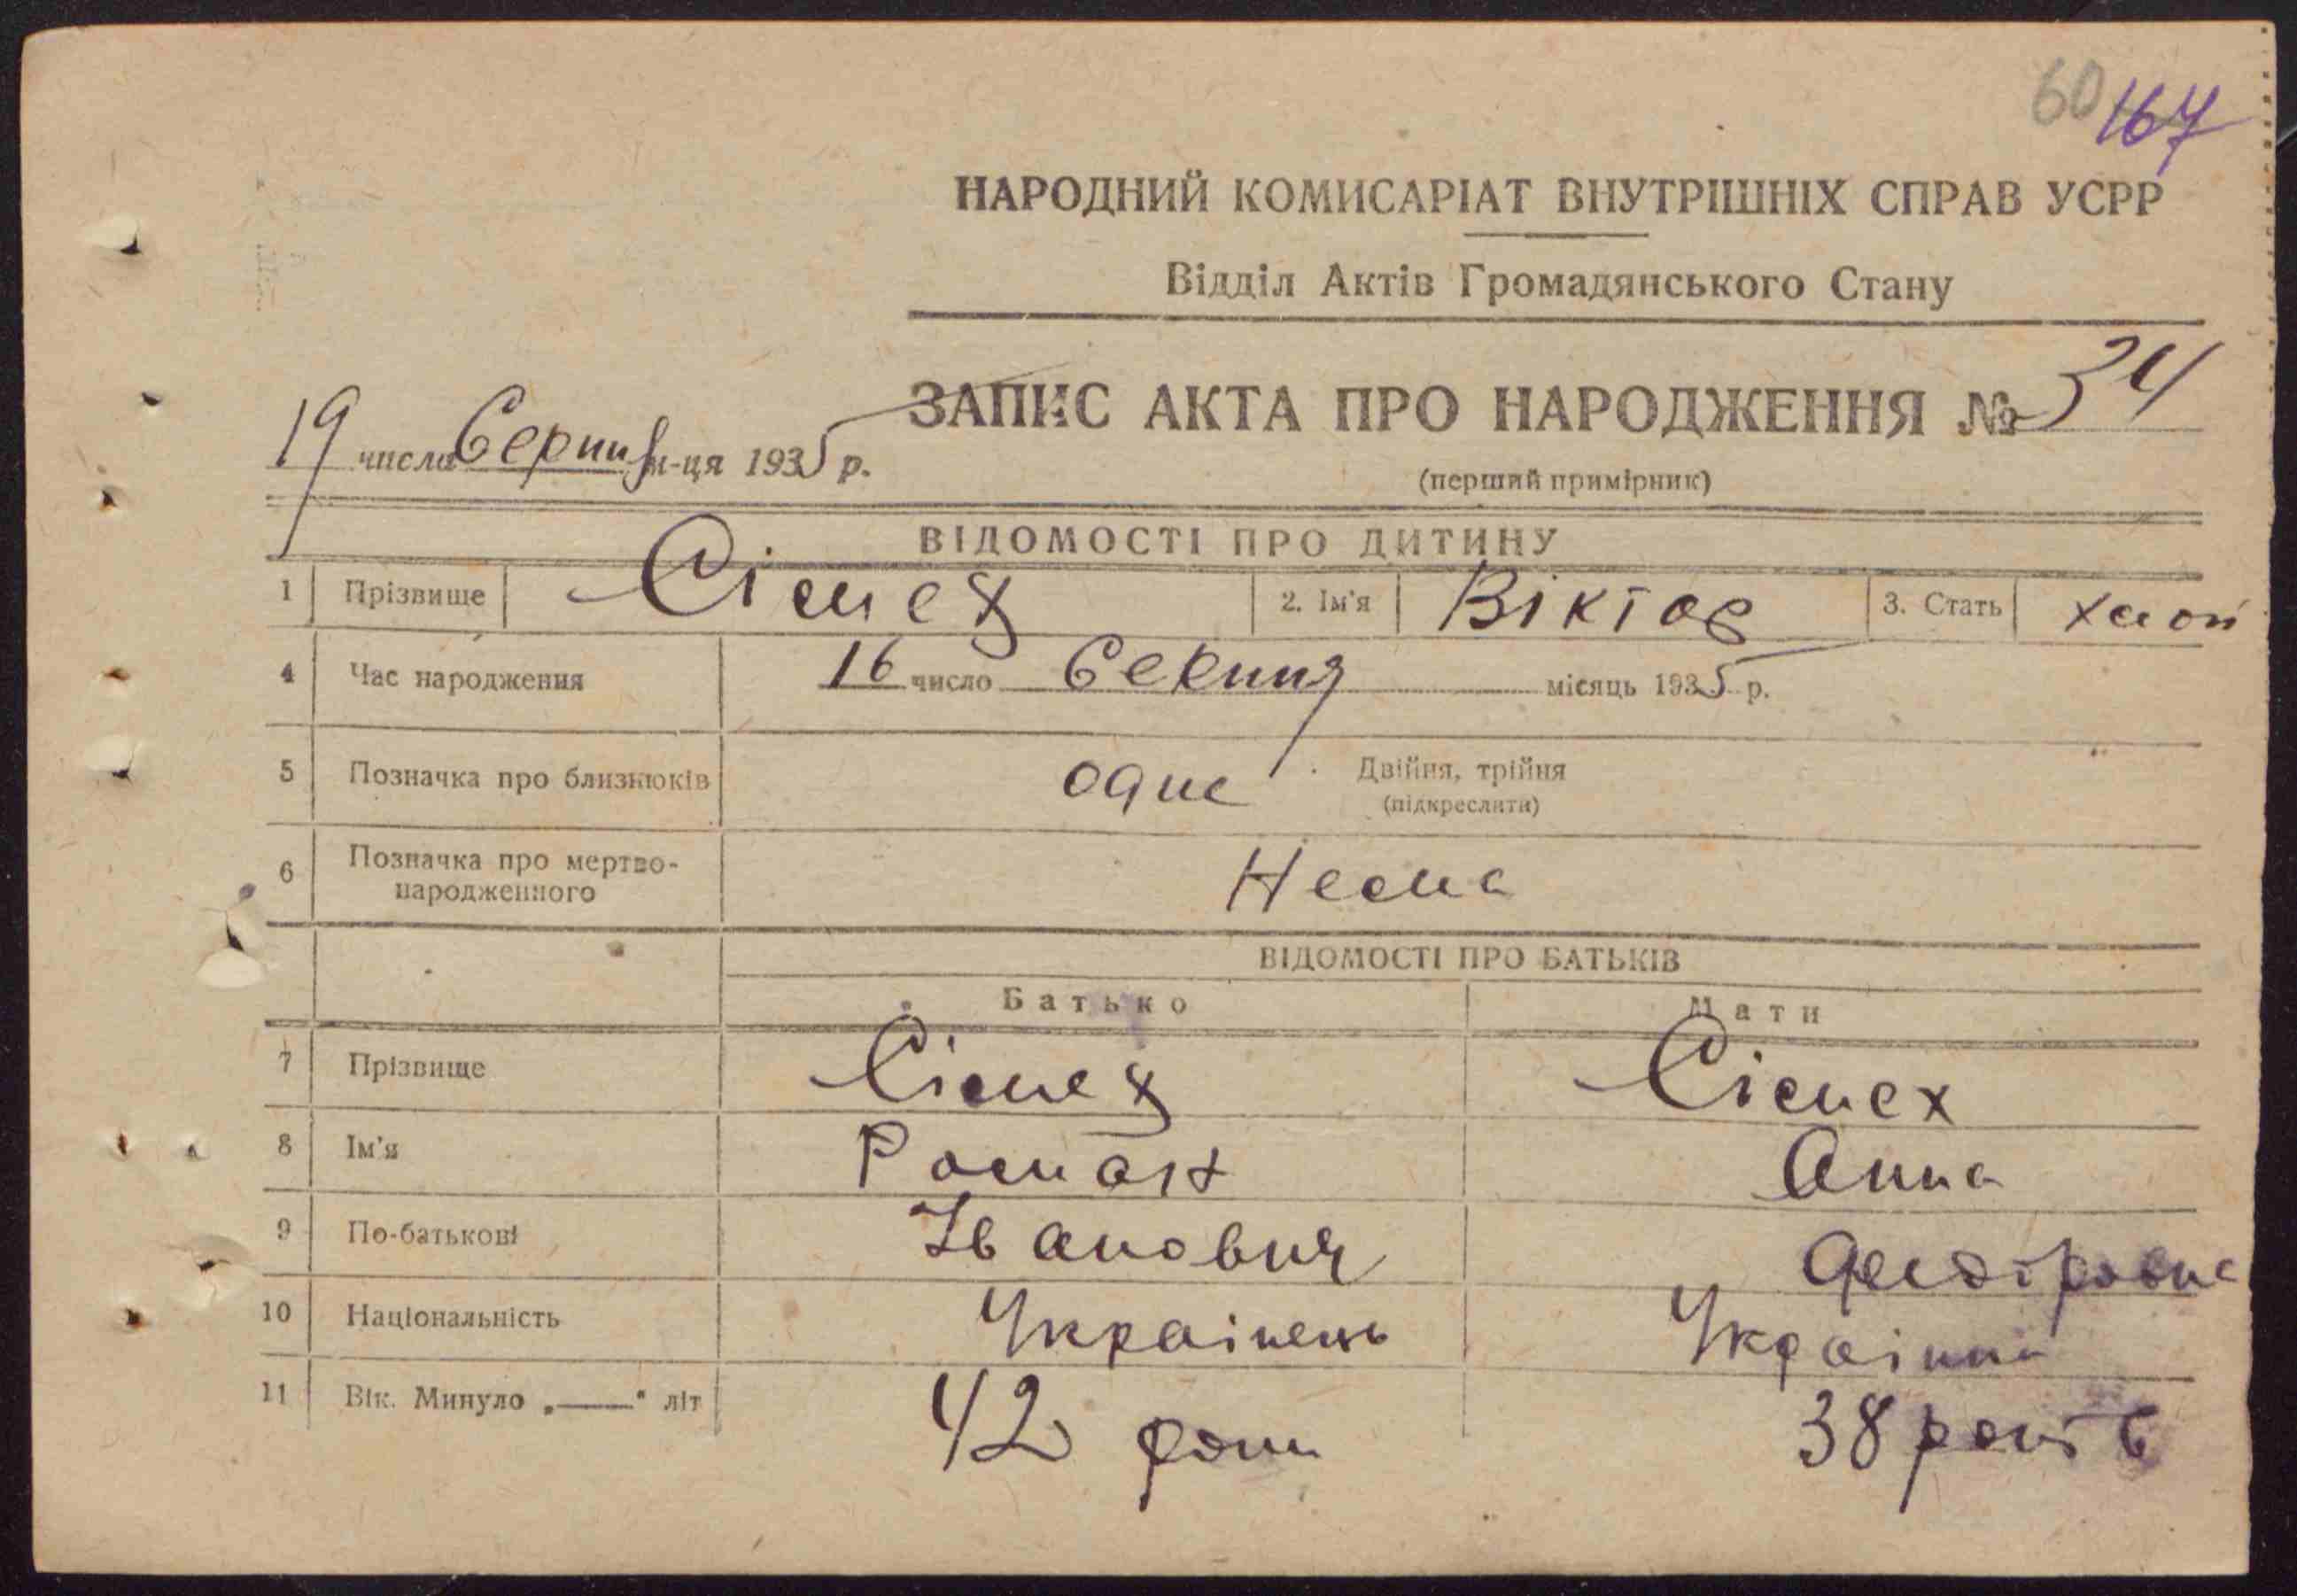 60 167
НАРОДНИЙ КОМИСАРІАТ ВНУТРІШНІХ СПРАВ УСРР
Відділ Актів Громадянського Стану
ЗАПИС АКТА ПРО НАРОДЖЕННЯ № 34
19 числа Серпня м-ця 1935 р.
(перший примірник)
ВІДОМОСТІ ПРО ДИТИНУ
1 Прізвище Сімех 2. Ім'я Віктор 3. Стать
4 Час народження 16 число Серпня місяць 1935 р.
5 Позначка про близнюків одне Двійня, трійня
(підкреслити)
6 Позначка про мертво-
народженного Нема
ВІДОМОСТІ ПРО БАТЬКІВ
Батько Мати
7 Прізвище Сімех Сімех
8 Ім'я Роман Анна
9 По-батькові Іванович
10 Національність Українець Українка
11 Вік. Минуло „——" літ 42 роки 38 років